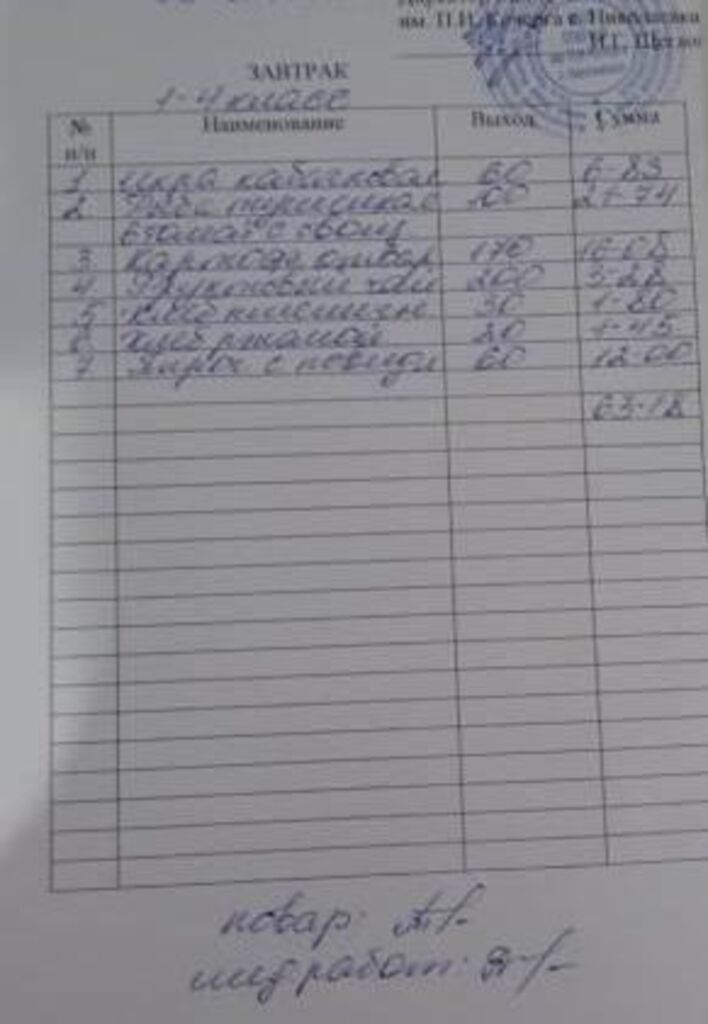 им. П.И. Кочерга с. Николаевка
И.Г. Щегло
ЗАВТРАК
1-4 класс
№ п/п Наименование Выход Сумма
1 икра кабачковая 60 6-83
2 Рыба тушеная 100 21-74
в томате с овощ
3 Картофель отвар 170 16-08
4 Фруктовый чай 200 3-28
5 хлеб пшеничн 30 1-80
6 хлеб ржаной 20 1-45
7 Пирог с повидл 60 12-00
63-18
повар:
мед работ: